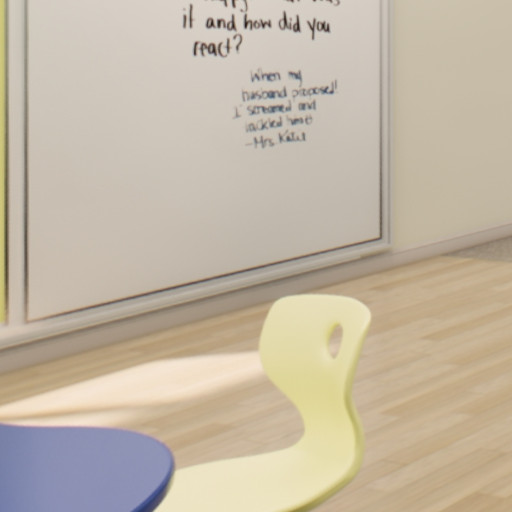 it and how did you
react?
When my
husband proposed!
I screamed and
tackled him!
-Mrs. Katie